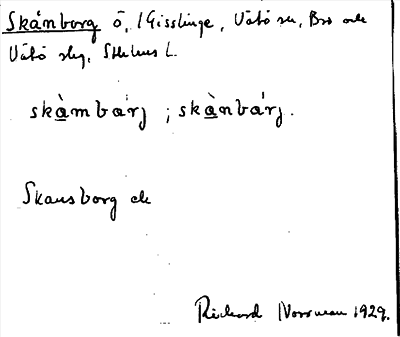 Skånborg ö, i Gisslinge, Vätö sn, Bro och
Vätö skg, Sthlms l.
skå̀mbárj ; skå̀nbárj.
Skansborg ek
Rickard Norrman 1929.